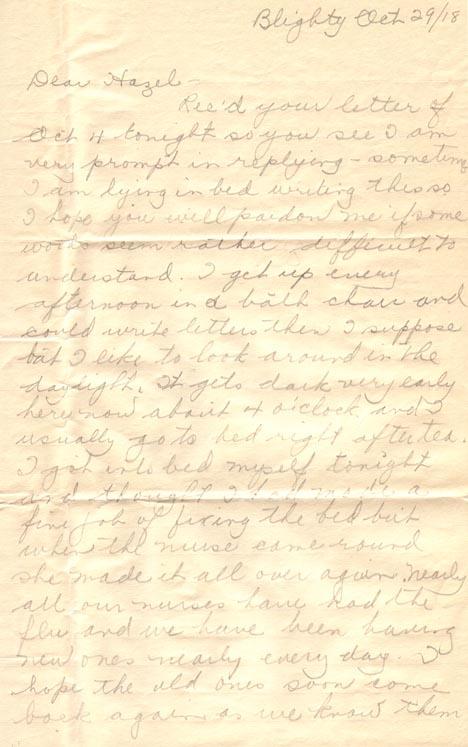 Blighty Oct 29/18
Dear Hazel –
Rec'd your letter of
Oct 4 tonight so you see I am
very prompt in replying – sometimes
I am lying in bed writing this so
I hope you will pardon me if some
words seem rather difficult to
understand. I get up every
afternoon in a bath chair and
could write letters then I suppose
but I like to look around in the
daylight. It gets dark very early
here now about 4 o'clock and I
usually go to bed right after tea.
I got into bed myself tonight
and thought I had made a
fine job of fixing the bed but
when the nurse came round
she made it all over again. Nearly
all our nurses have had the
flu and we have been having
new ones nearly every day. I
hope the old ones soon come
back again as we know them